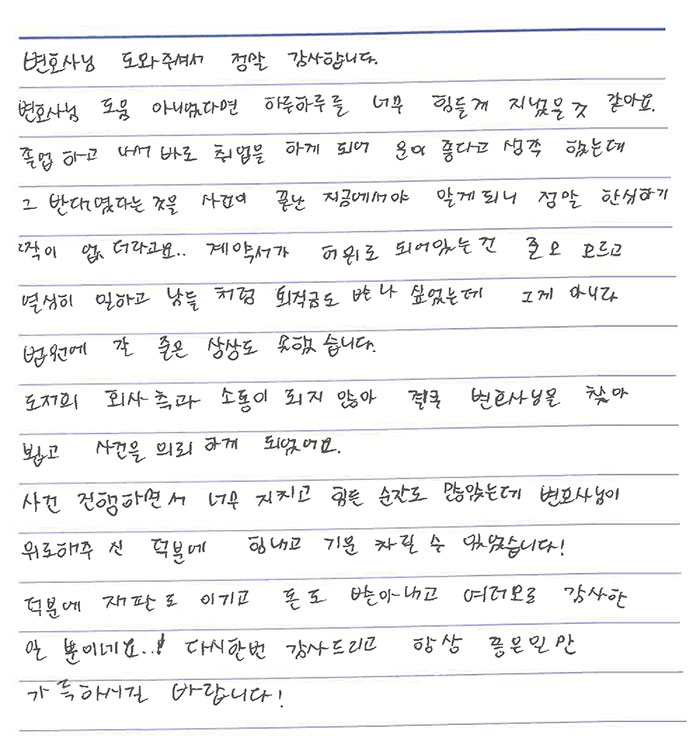 변호사님 도와주셔서 정말 감사합니다.
변호사님 도움 아니었다면 하루하루를 너무 힘들게 지냈을것 같아요.
졸업 하고 나서 바로 취업을 하게 되어 운이 좋다고 생각 했는데
그 반대였다는 것을 사건이 끝난 지금에서야 알게되니 정말 한심하기
짝이 없더라고요.. 계약서가 허위로 되어있는건 꿈오 모르고
열심히 일하고 남들 처럼 퇴직금도 받나 싶었는데 그게 아니라
법원에 갈 줄은 상상도 못했습니다.
도저히 회사측과 소통이 되지 않아 결국 변호사님을 찾아
뵙고 사건을 의뢰 하게 되었어요.
사건 진행하면서 너무 지치고 힘든 순간도 많았는데 변호사님이
위로해주신 덕분에 힘내고 기운 차릴 수 있었습니다!
덕분에 재판도 이기고 돈도 받아내고 여러모로 감사한
일 뿐이네요..! 다시한번 감사드리고 항상 좋은일만
가득하시길 바랍니다!